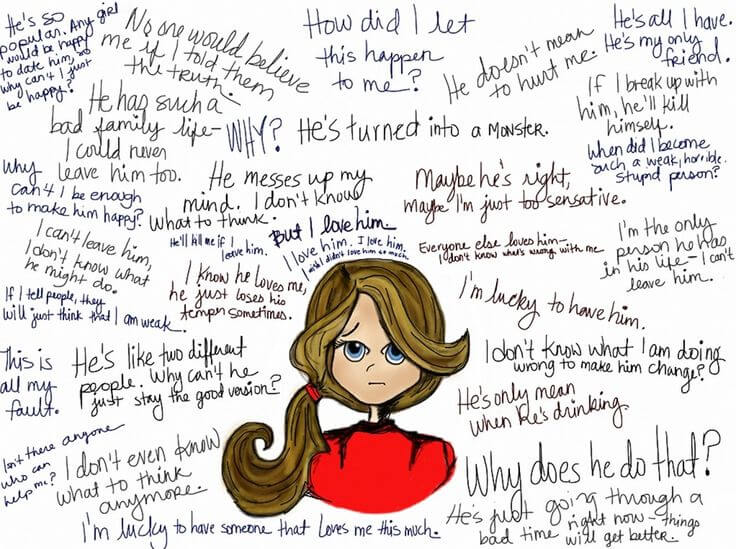 He's so
popular. Any girl
would be happy
to date him, so
why can't I just
be happy?
No one would believe
me if I told them
the truth.
How did I let
this happen
to me?
He doesn't mean
to hurt me.
He's all I have.
He's my only
friend.
If I break up with
him, he'll kill
himself.
When did I become
such a weak, horrible.
stupid person?
He has such a
bad family life-
I could never
leave him too.
WHY?
He's turned into a MONSTER.
Why
can't I be enough
to make him happy?
He messes up my
mind. I don't know
what to think.
Maybe he's right,
maybe I'm just too sensative.
But I love him.
I love him. I love him.
I wish I didn't love him so much.
He'll kill me if I
leave him.
Everyone else loves him-
I don't know what's wrong with me
I'm the only
person he has
in his life - I can't
leave him.
I can't leave him,
I don't know what
he might do.
I know he loves me,
he just loses his
temper sometimes.
If I tell people, they
will just think that I am weak.
I'm lucky to have him.
This is
all my
fault.
He's like two different
people. Why can't he
just stay the good version?
I don't know what I am doing
wrong to make him change?
He's only mean
when he's drinking.
Isn't there anyone
who can
help me?
I don't even know
what to think
anymore.
Why does he do that?
He's just going through a
bad time right now - things
will get better.
I'm lucky to have someone that loves me this much.